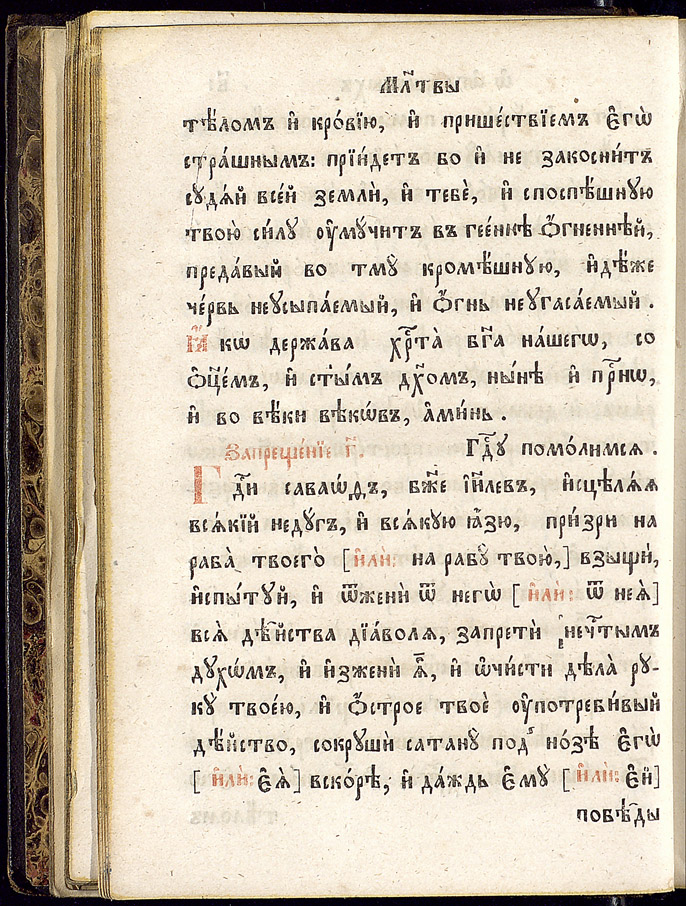 Мл҃твы
тѣ́ломъ и҆ кро́вїю, и҆ прише́ствїемъ є҆гѡ̀
стра́шнымъ: прїи́детъ бо и҆ не закосни́тъ
сꙋдѧ́й всей землѝ, и҆ тебѐ, и҆ споспѣ́шнꙋю
твою̀ си́лꙋ ᲂу҆мꙋ́читъ въ гее́ннѣ ѻ҆́гненнѣй,
преда́вый во тмꙋ̀ кромѣ́шнꙋю, и҆дѣ́же
че́рвь неусыпа́емый, и҆ ѻ҆́гнь неугаса́емый.
Ꙗ҆́кѡ держа́ва хрⷭ҇та̀ бг҃а на́шегѡ, со
ѻ҆ц҃е́мъ, и҆ ст҃ы́мъ дх҃омъ, ны́нѣ и҆ прⷭ҇нѡ,
и҆ во вѣ́ки вѣкѡ́въ, а҆ми́нь.
Запреще́нїе г҃. Гдⷭ҇ꙋ помо́лимсѧ.
Гдⷭ҇и саваѡ́дъ, бж҃е і҆и҃левъ, и҆сцѣлѧ́ѧ
всѧ́кїй недꙋ́гъ, и҆ всѧ́кꙋю ꙗ҆́зю, при́зри на
раба̀ твоего̀ [и҆лѝ: на рабꙋ̀ твою̀,] взыщѝ,
и҆спы́тꙋй, и҆ ѿженѝ ѿ негѡ̀ [и҆лѝ: ѿ неѧ̀]
всѧ̀ дѣ̑йства дїа́волѧ, запретѝ нечⷭ҇тымъ
дꙋхѡ́мъ, и҆ и҆зженѝ ѧ҆̀, и҆ ѡ҆чи́сти дѣла̀ рꙋ-
кꙋ̀ твоє́ю, и҆ ѻ҆́строе твоѐ ᲂу҆потреби́вый
дѣ́йство, сокрꙋшѝ сатанꙋ̀ под̾ но́зѣ є҆гѡ̀
[и҆лѝ: є҆ѧ̀] вско́рѣ, и҆ да́ждь є҆мꙋ̀ [и҆лѝ: є҆́й]
побѣ̑ды